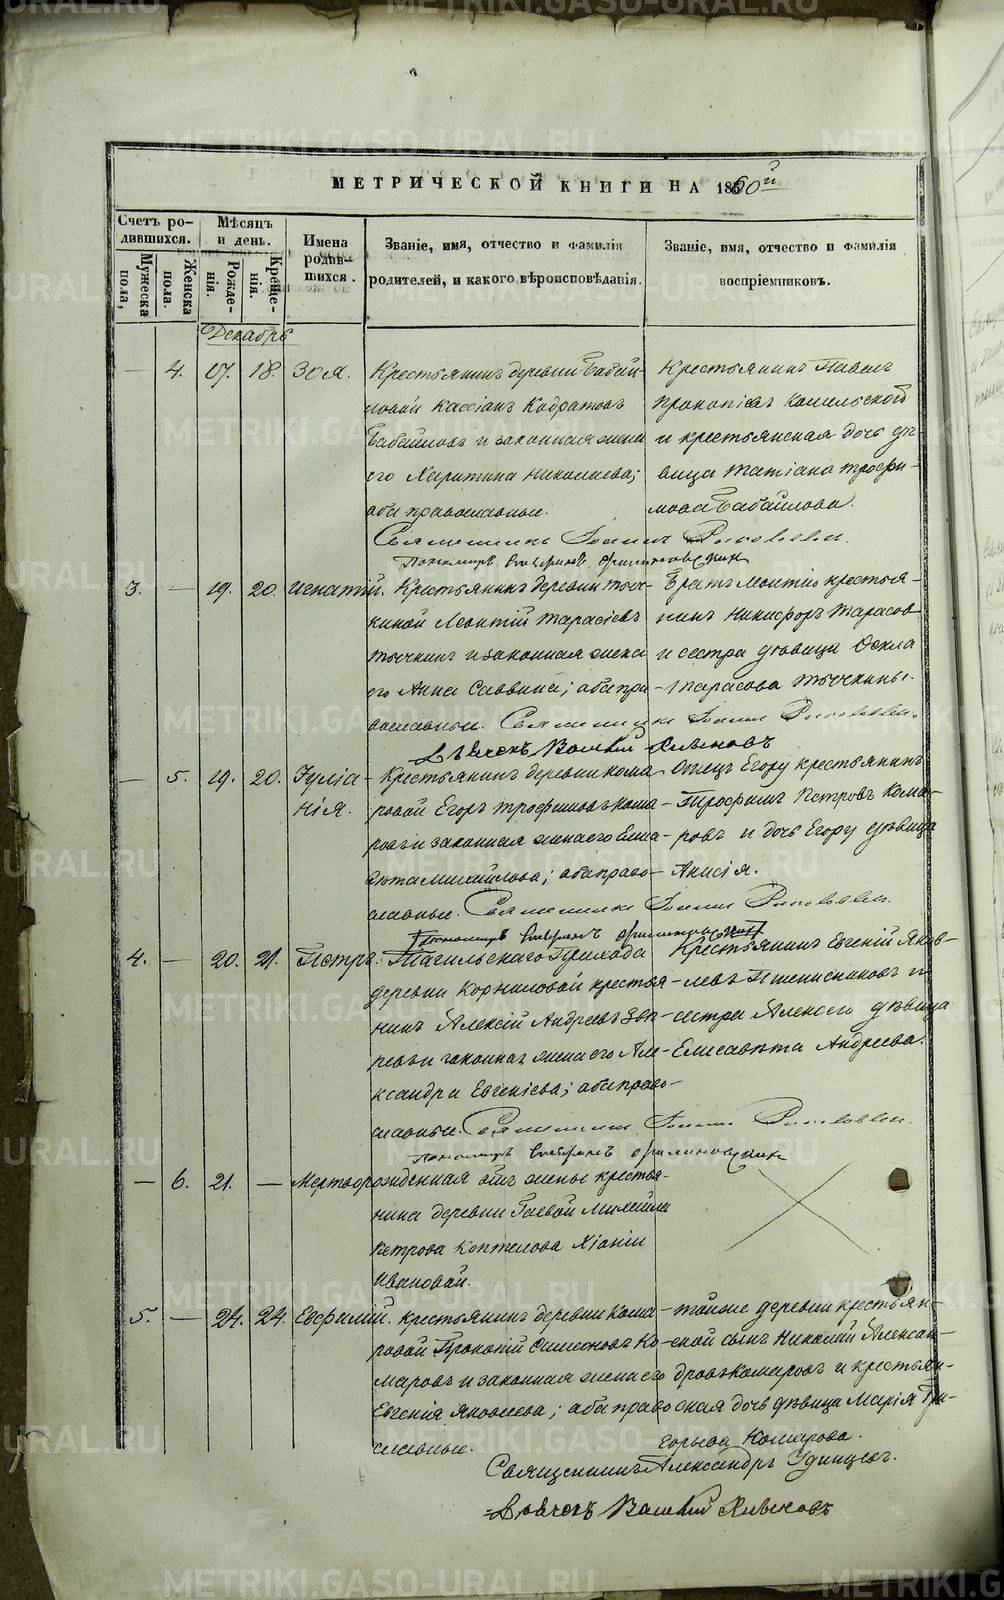 METRIKI.GASO-URAL.RU
МЕТРИЧЕСКОЙ КНИГИ НА 1860й
Счетъ родившихся.
Мужеска пола,
Женска пола.
Мѣсяцъ и день.
Рожденія.
Крещенія.
Имена родившихся.
Званіе, имя, отчество и фамилія родителей, и какого вѣроисповѣданія.
Званіе, имя, отчество и фамилія воспріемниковъ.
Декабрь
— 4. 17. 18. Зоя.
Крестьянинъ деревни Бабай-
ловой Кассіанъ Кодратовъ
Бабайловъ и законная жена
его Харитина Николаева;
оба православные.
Крестьянинъ Павелъ
Прокопіевъ
и крестьянская дочь дѣ-
вица Татіана Трофи-
мова Бабайлова.
Священникъ Іоаннъ
Пономарь
3. — 19. 20. Игнатій.
Крестьянинъ деревни Тыч-
киной Леонтій Тарасіевъ
Тычкинъ и законная жена
его Анна Саввина; оба пра-
вославные.
Братъ Леонтію крестья-
нинъ Никифоръ Тарасов
и сестра дѣвица Фекла
Тарасова Тычкины.
Священникъ Іоаннъ
Дьячокъ Василій
— 5. 19. 20. Іуліа-
нія.
Крестьянинъ деревни Кома-
ровой Егоръ Трофимовъ Кома-
ровъ и законная жена его Елиса-
вета Михайлова; оба право-
славные.
Отецъ Егору крестьянинъ
Трофимъ Петровъ Кома-
ровъ и дочь Егору дѣвица
Анисія.
Священникъ Іоаннъ
Пономарь
4. — 20. 21. Петръ.
Тагильскаго Прихода
деревни Корниловой крестья-
нинъ Алексій Андреевъ Звѣ-
ревъ и законная жена его Але-
ксандра Евгеніева; оба право-
славные.
Крестьянинъ Евгеній Яков-
левъ Пшенисниковъ и
сестра Алексею дѣвица
Елисавѣта Андреева.
Священникъ Іоаннъ
Пономарь
— 6. 21. —
Мертворожденная отъ жены крестья-
нина деревни Гаевой Михаила
Петрова Коптелова Хіоніи
Ивановой.
5. — 24. 24. Евфимій.
Крестьянинъ деревни Кома-
ровой Прокопій Симеоновъ Ко-
маровъ и законная жена его
Евгенія Яковлева; оба право-
славные.
тойже деревни крестьян-
ской сынъ Николай Алексан-
дровъ Комаровъ и крестьян-
ская дочь дѣвица Марія Гри-
горьева Комарова.
Священникъ Александръ Удинцевъ.
Дьячокъ Василій